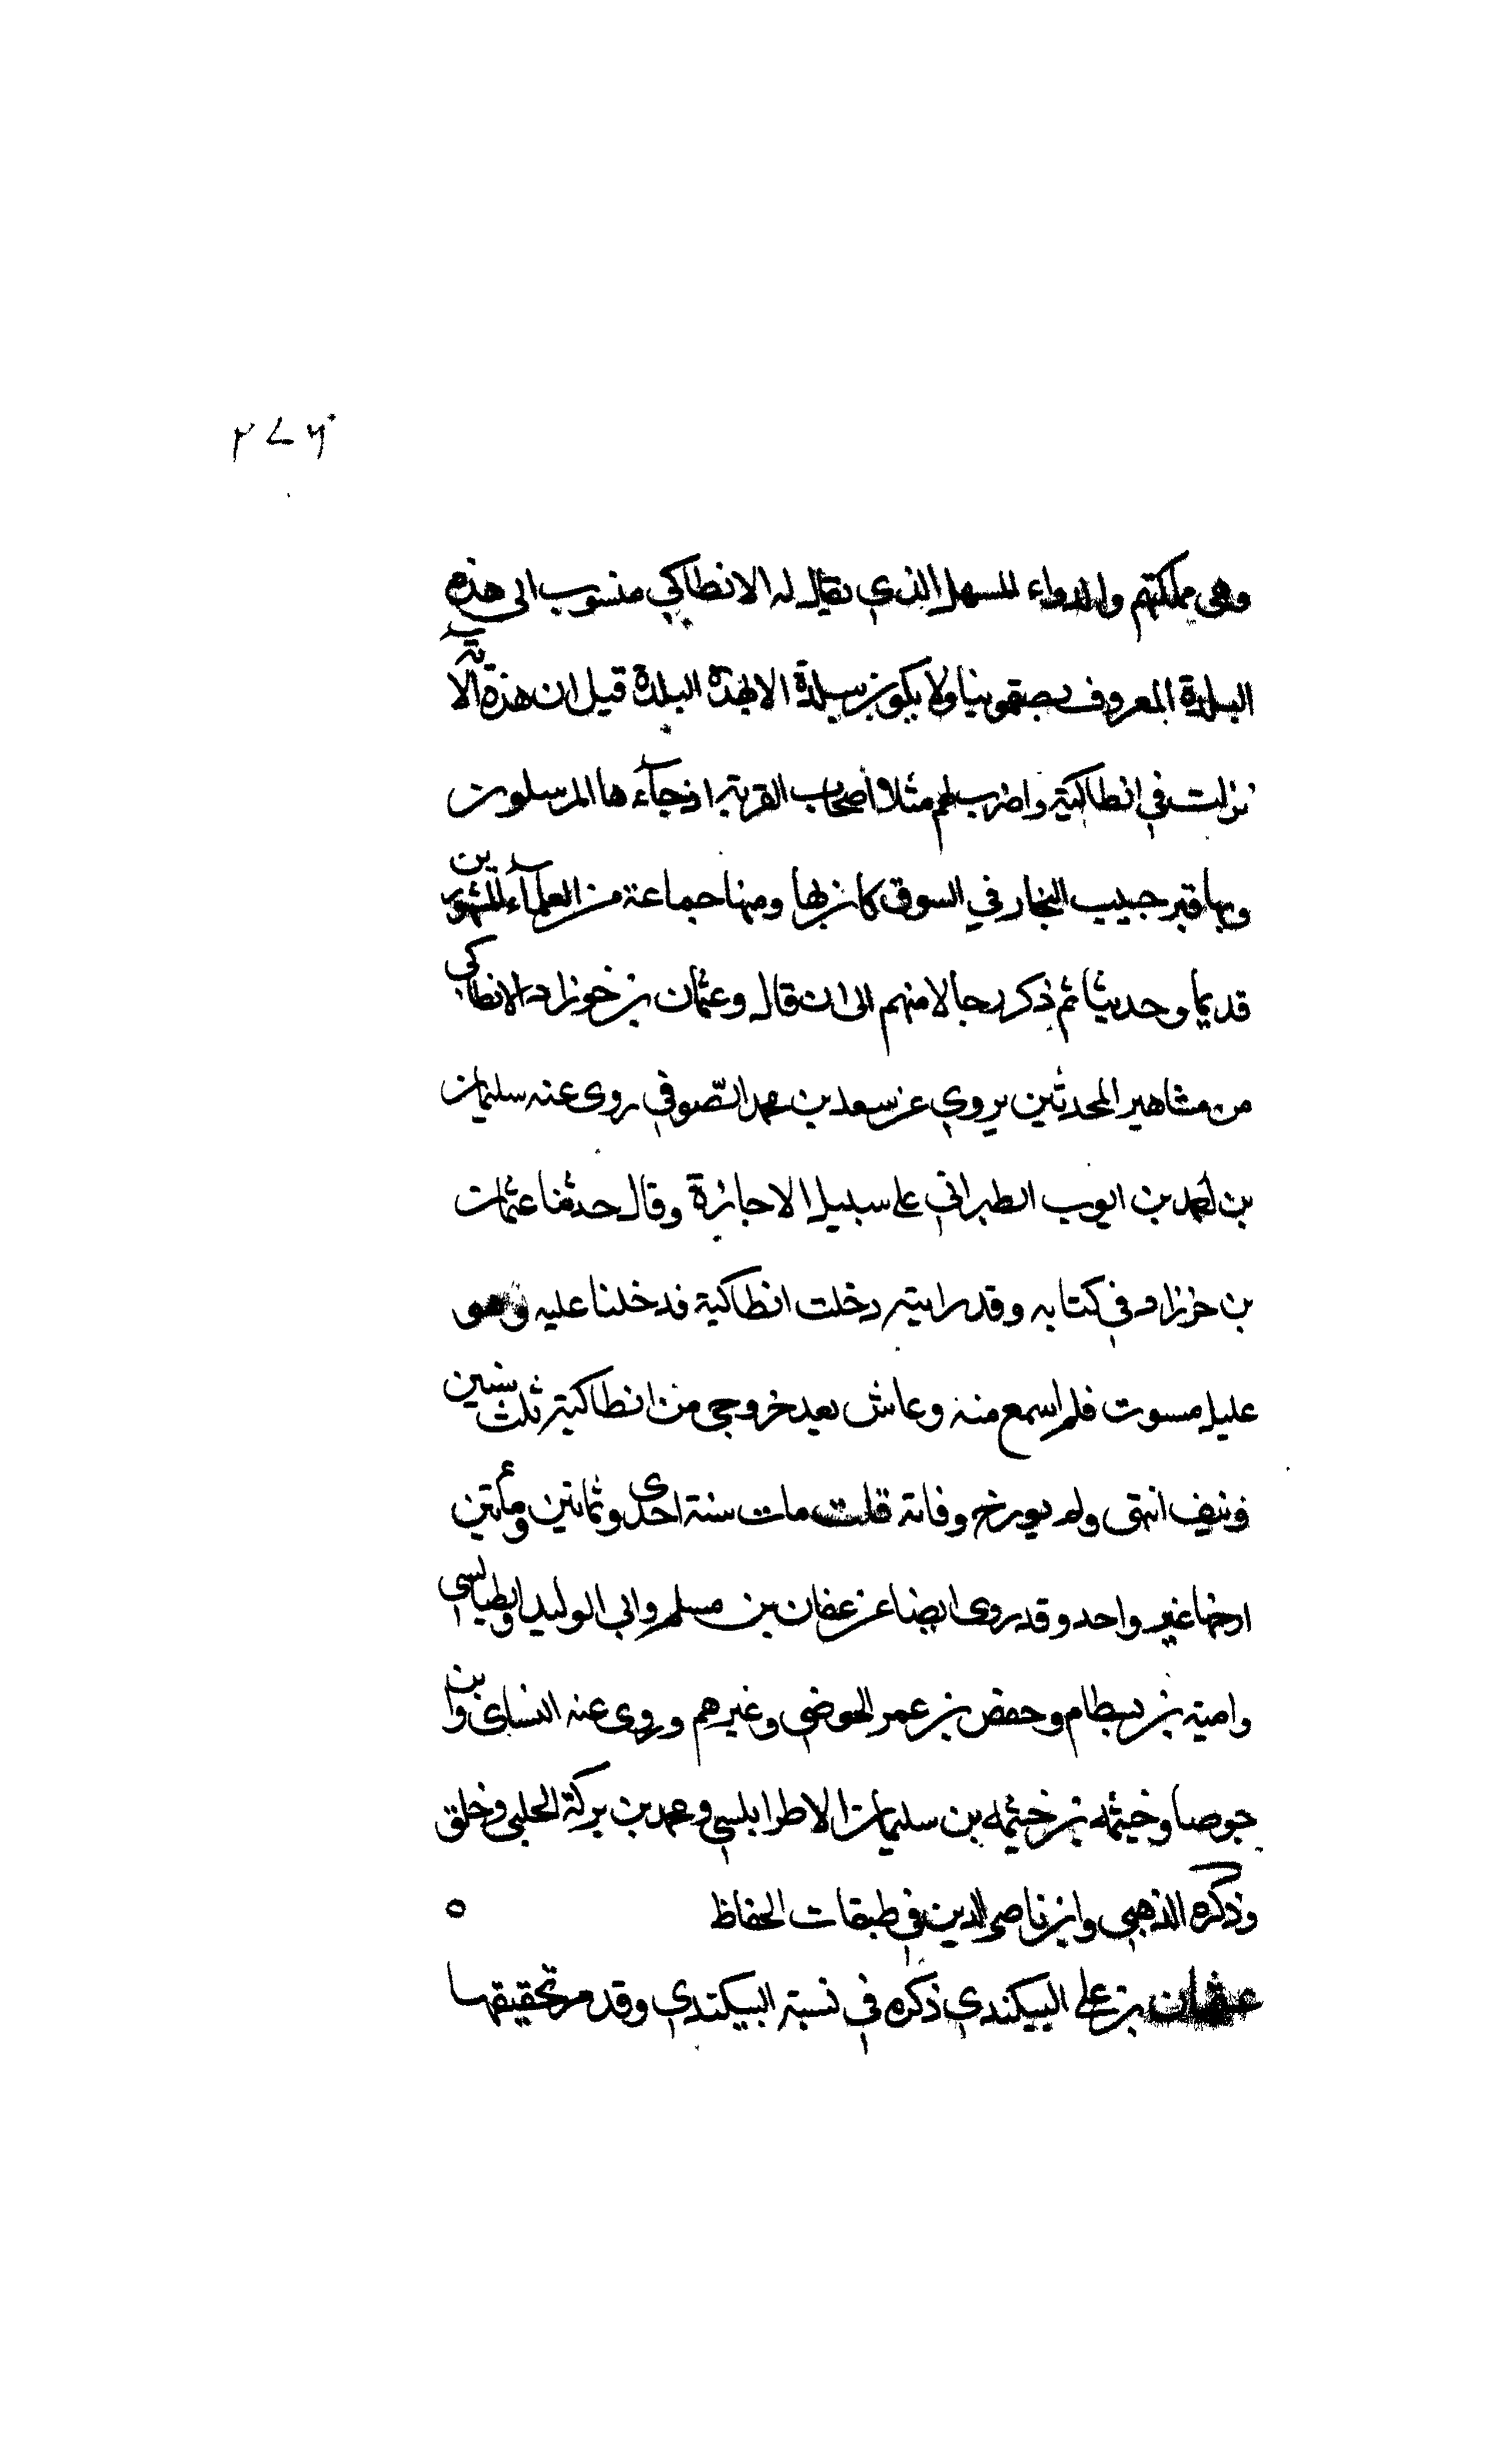 ٢٧٦
وهي مملكتهم والدواء المسهل الذي يقال له الانطاكي منسوب الى هذه
البلدة المعروف بسقمونيا ولا يكون ببلدة الا بهذه البلدة قيل ان هذه الآية
نزلت في انطاكية واضرب لهم مثلا اصحاب القرية اذ جآءها المرسلون
وبها قبر حبيب النجار في السوق كان بها ومنها جماعة من العلمآء المشهورين
قديما وحديثا ثم ذكر رجالا منهم الى ان قال وعثمان بن خرزاد الانطاكي
من مشاهير المحدثين يروي عن سعد بن محمد الصوفي روى عنه سليمان
بن احمد بن ايوب الطبراني على سبيل الاجازة وقال حدثنا عثمان
بن خرزاد في كتابه وقد رايته دخلت انطاكية فدخلنا عليه وهو
عليل مسبوت فلم اسمع منه وعاش بعد خروجي من انطاكية ثلث سنين
ونيف انتهى ولم يورخ وفاته قلت مات سنة احدى وثمانين ومأتين
ارخها غير واحد وقد روى ايضا عن عفان بن مسلم وابي الوليد الطيالسي
وامية بن بسطام وحفص بن عمر الحوضي وغيرهم وروى عنه النسائى وابن
جوصا وخيثمه بن خيثمه بن سليمان الاطرابلسي ومحمد بن بركة الحلبي وخلق
وذكره الذهبي وابن ناصر الدين في طبقات الحفاظ ٥
عثمان بن علي البيكندي ذكره في نسبة البيكندي وقد مر تحقيقها